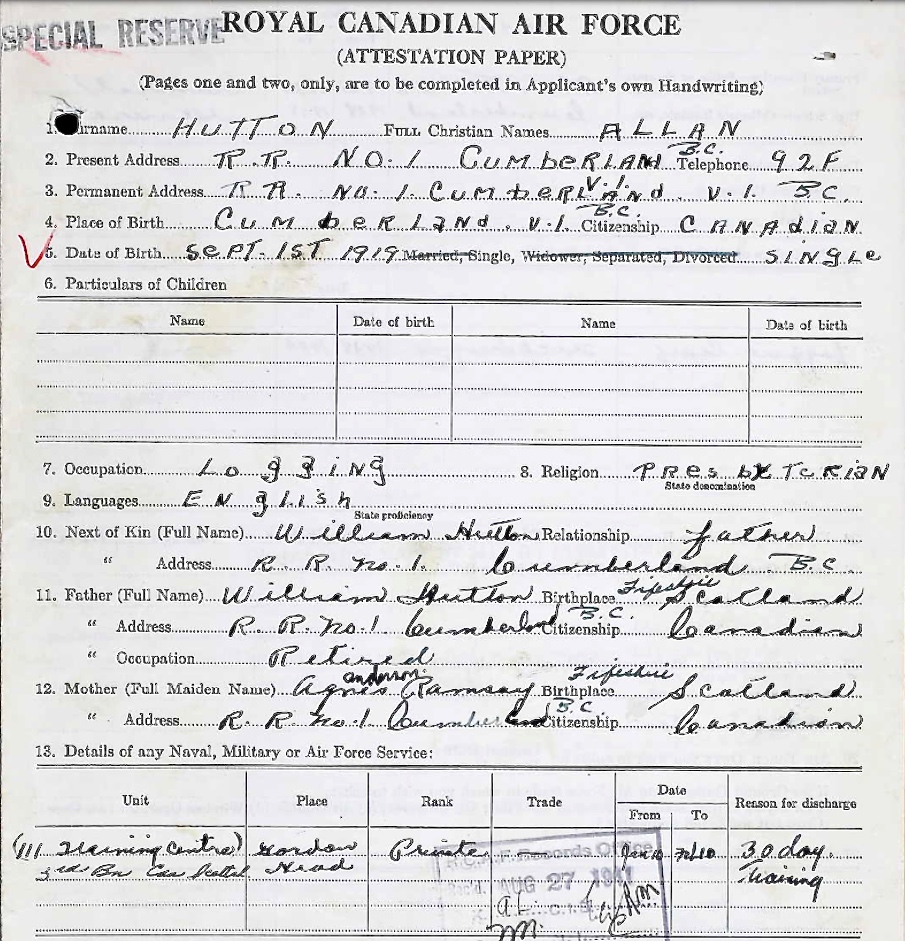 SPECIAL RESERVE
ROYAL CANADIAN AIR FORCE
(ATTESTATION PAPER)
(Pages one and two, only, are to be completed in Applicant's own Handwriting)
1. Surname HUTTON FULL Christian Names ALLAN
2. Present Address R.R. NO. 1 CUMBERLAND B.C. Telephone 92F
3. Permanent Address R.R. NO. 1. CUMBERLAND V.I. B.C.
4. Place of Birth CUMBERLAND, V.I. B.C. Citizenship CANADIAN
5. Date of Birth SEPT. 1ST 1919 Married, Single, Widower, Separated, Divorced SINGLE
6. Particulars of Children
Name Date of birth Name Date of birth
7. Occupation LOGGING 8. Religion PRESBYTERIAN
State denomination
9. Languages ENGLISH
State proficiency
10. Next of Kin (Full Name) William Hutton Relationship father
" Address R. R. no. 1. Cumberland B.C.
11. Father (Full Name) William Hutton Birthplace Fifeshire Scotland
" Address R. R. no. 1 Cumberland B.C. Citizenship Canadian
" Occupation Retired
12. Mother (Full Maiden Name) Agnes anderson Ramsay Birthplace Fifeshire Scotland
" Address R. R. no. 1 Cumberland B.C. Citizenship Canadian
13. Details of any Naval, Military or Air Force Service:
Unit Place Rank Trade Date Reason for discharge
From To
(111 Training Centre) Gordon Private Jan 10 30 day
3rd Bn Can Head training
R.C.A.F. Records Office
AUG 27 1941